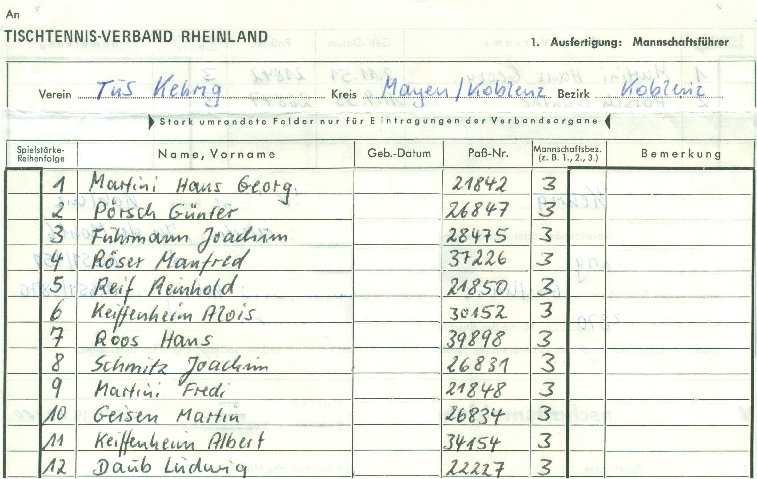 An
TISCHTENNIS-VERBAND RHEINLAND
1. Ausfertigung: Mannschaftsführer
Verein TuS Kehrig Kreis Mayen/Koblenz Bezirk Koblenz
Stark umrandete Felder nur für Eintragungen der Verbandsorgane
Spielstärke-Reihenfolge Name, Vorname Geb.-Datum Paß-Nr. Mannschaftsbez. (z. B. 1., 2., 3.) Bemerkung
1 Martini Hans Georg 21842 3
2 Pörsch Günter 26847 3
3 Fuhrmann Joachim 28475 3
4 Röser Manfred 37226 3
5 Reif Reinhold 21850 3
6 Keiffenheim Alois 30152 3
7 Roos Hans 39898 3
8 Schmitz Joachim 26831 3
9 Martini Fredi 21848 3
10 Geisen Martin 26834 3
11 Keiffenheim Albert 34154 3
12 Daub Ludwig 22227 3